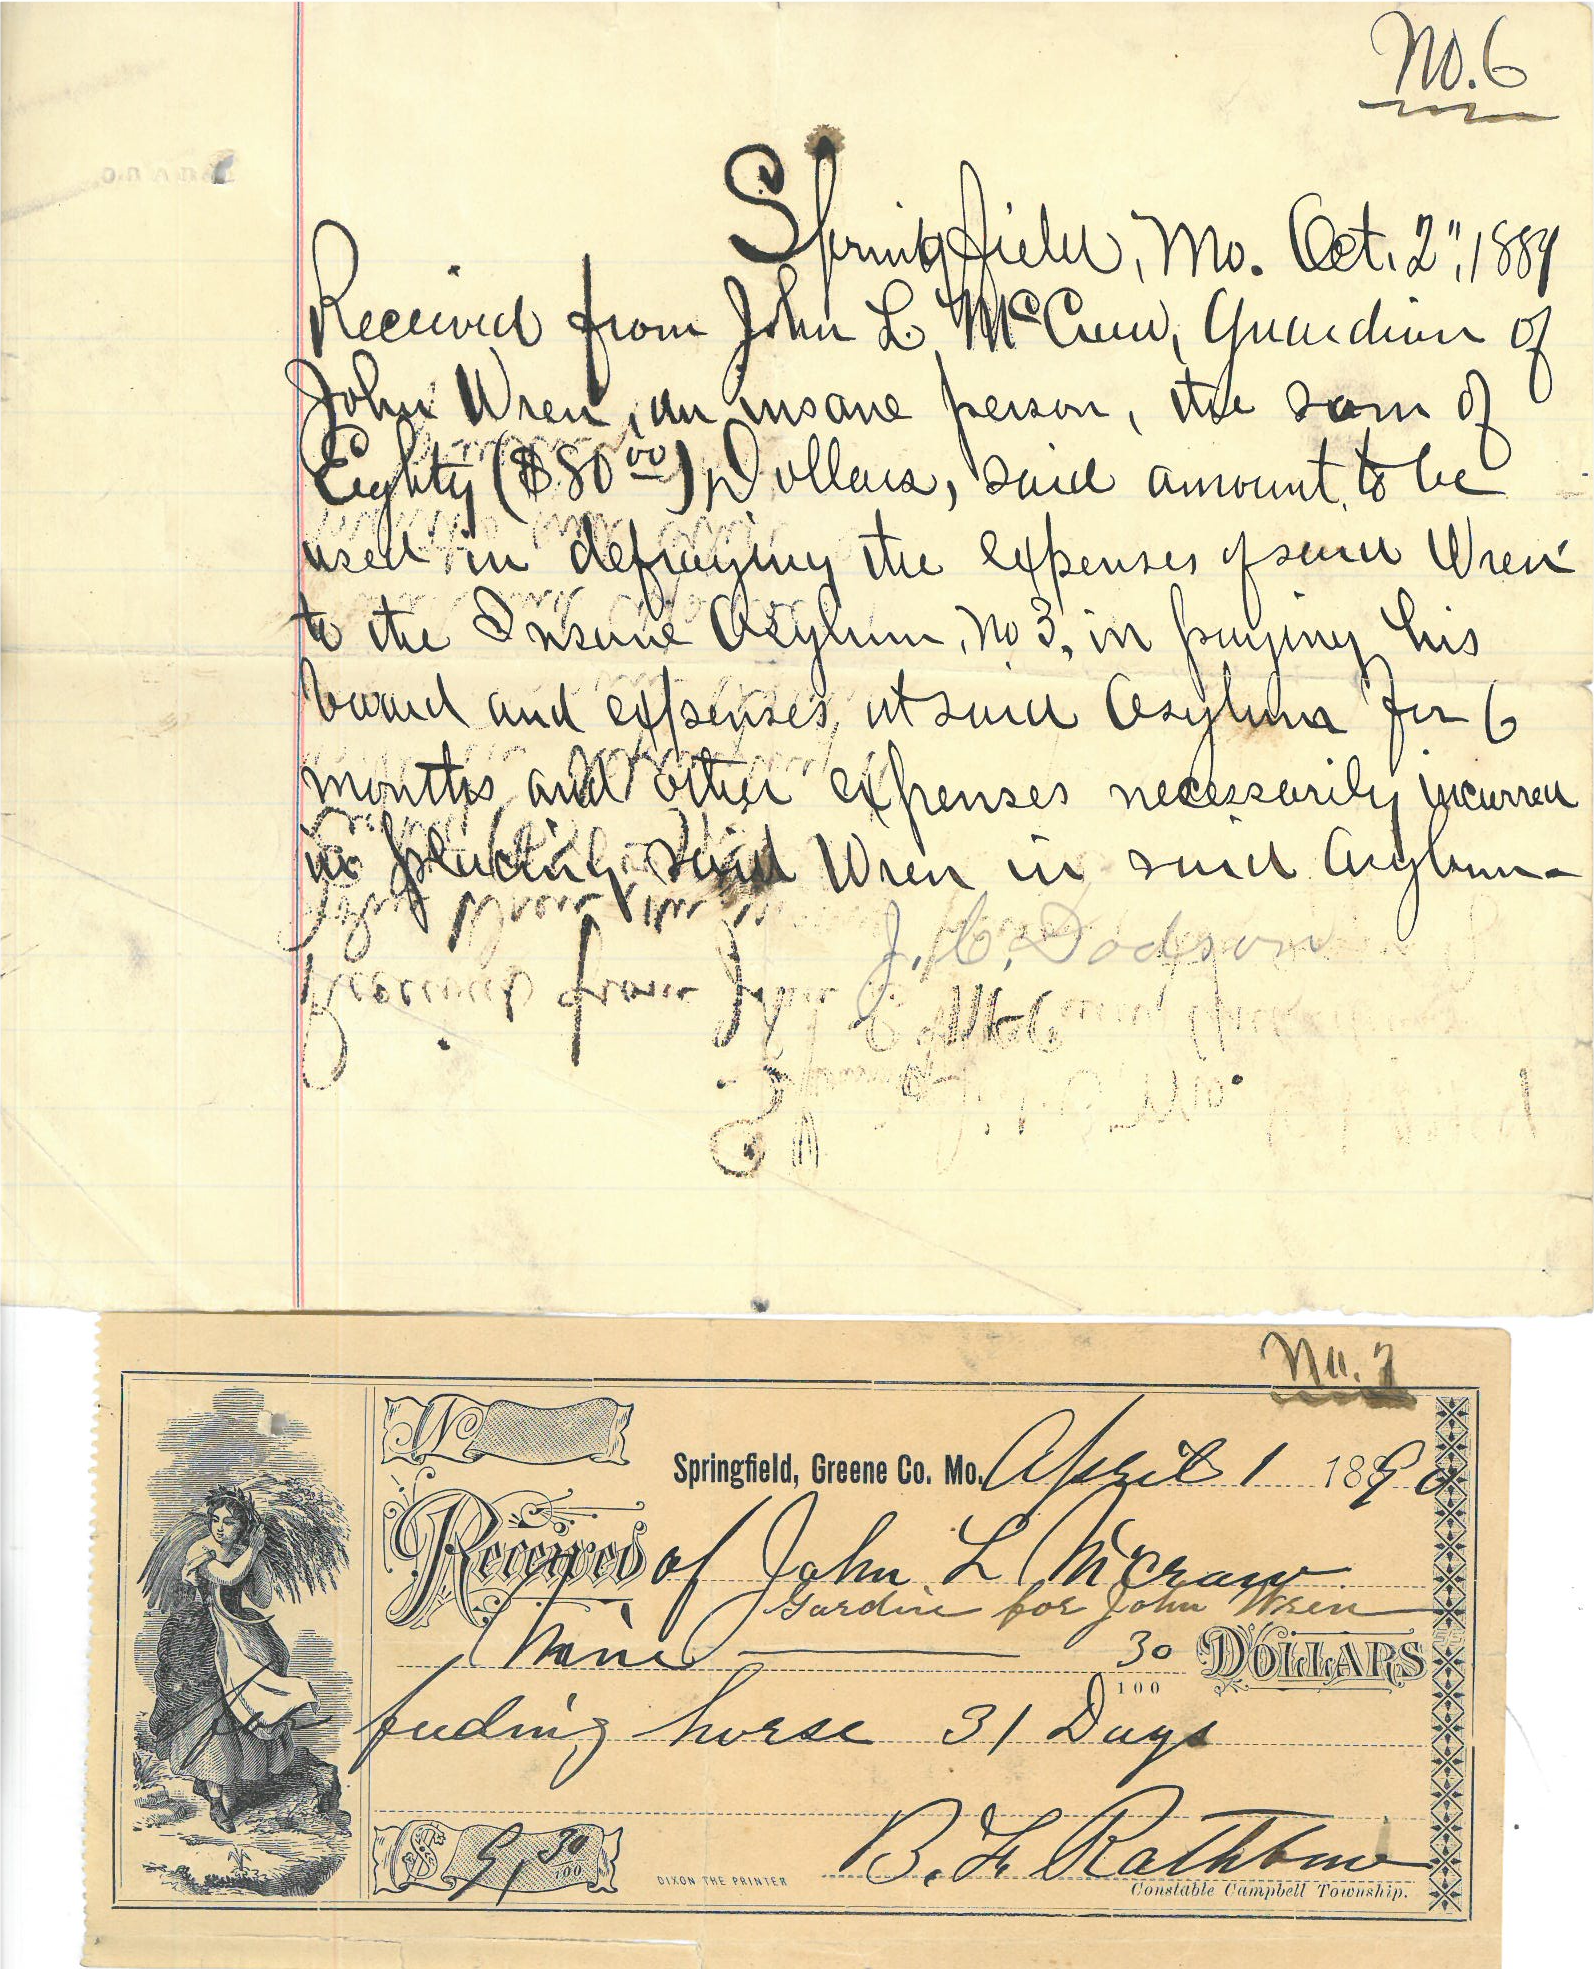 No. 6
Springfield, Mo. Oct. 2", 1889
Received from John L. McCraw, Guardian of
John Wren, an insane person, the sum of
Eighty ($80 00) Dollars, said amount to be
used in defraying the expenses of said Wren
to the Insane Asylum, No 3, in paying his
board and expenses at said Asylum for 6
months and other expenses necessarily incurred
in placing said Wren in said Asylum.
J. C. Dodson
No. 7
No
Springfield, Greene Co. Mo. April 1 1890
Received of John L McCraw
Gardine for John Wren
Nine 30/100 DOLLARS
for feeding horse 31 Days
$ 9, 30/100
B. F. Rathbone
DIXON THE PRINTER
Constable Campbell Township.